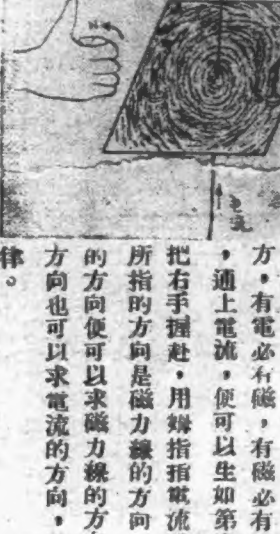 方，有電必有磁，有磁必有
，通上電流，便可以生如第
把右手握赴，用姆指指電流
所指的方向是磁力線的方向
的方向便可以求磁力線的方
方向也可以求電流的方向，
律。